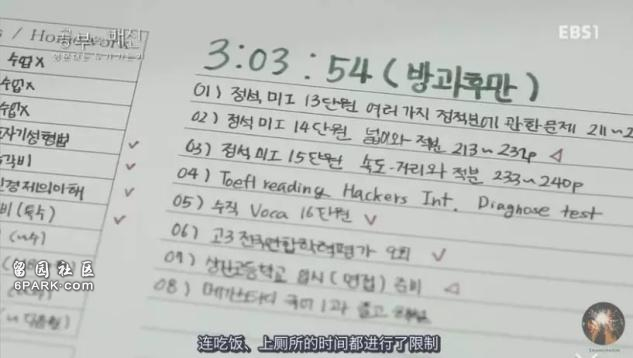 s / Homework
공부의 배신
EBS1
수업X
수업X
수업X
자기성형법
3:03:54 (방과후만)
01) 정석 미I 13단원 여러가지 적분법에 관한 문제 211~2
02) 정석 미I 14단원 넓이와 적분 213~232p
03) 정석 미I 15단원 속도·거리와 적분 233~240p
04) Toefl reading Hackers Int. Diagnose test
05) 수직 Voca 16단원
06) 고3 전국연합학력평가 오회
07) 상산고등학교 입시 (면접) 준비
08) 메가스터디 국어 1과
경제의이해
비 (특수)
留园社区
6PARK.com
连吃饭、上厕所的时间都进行了限制